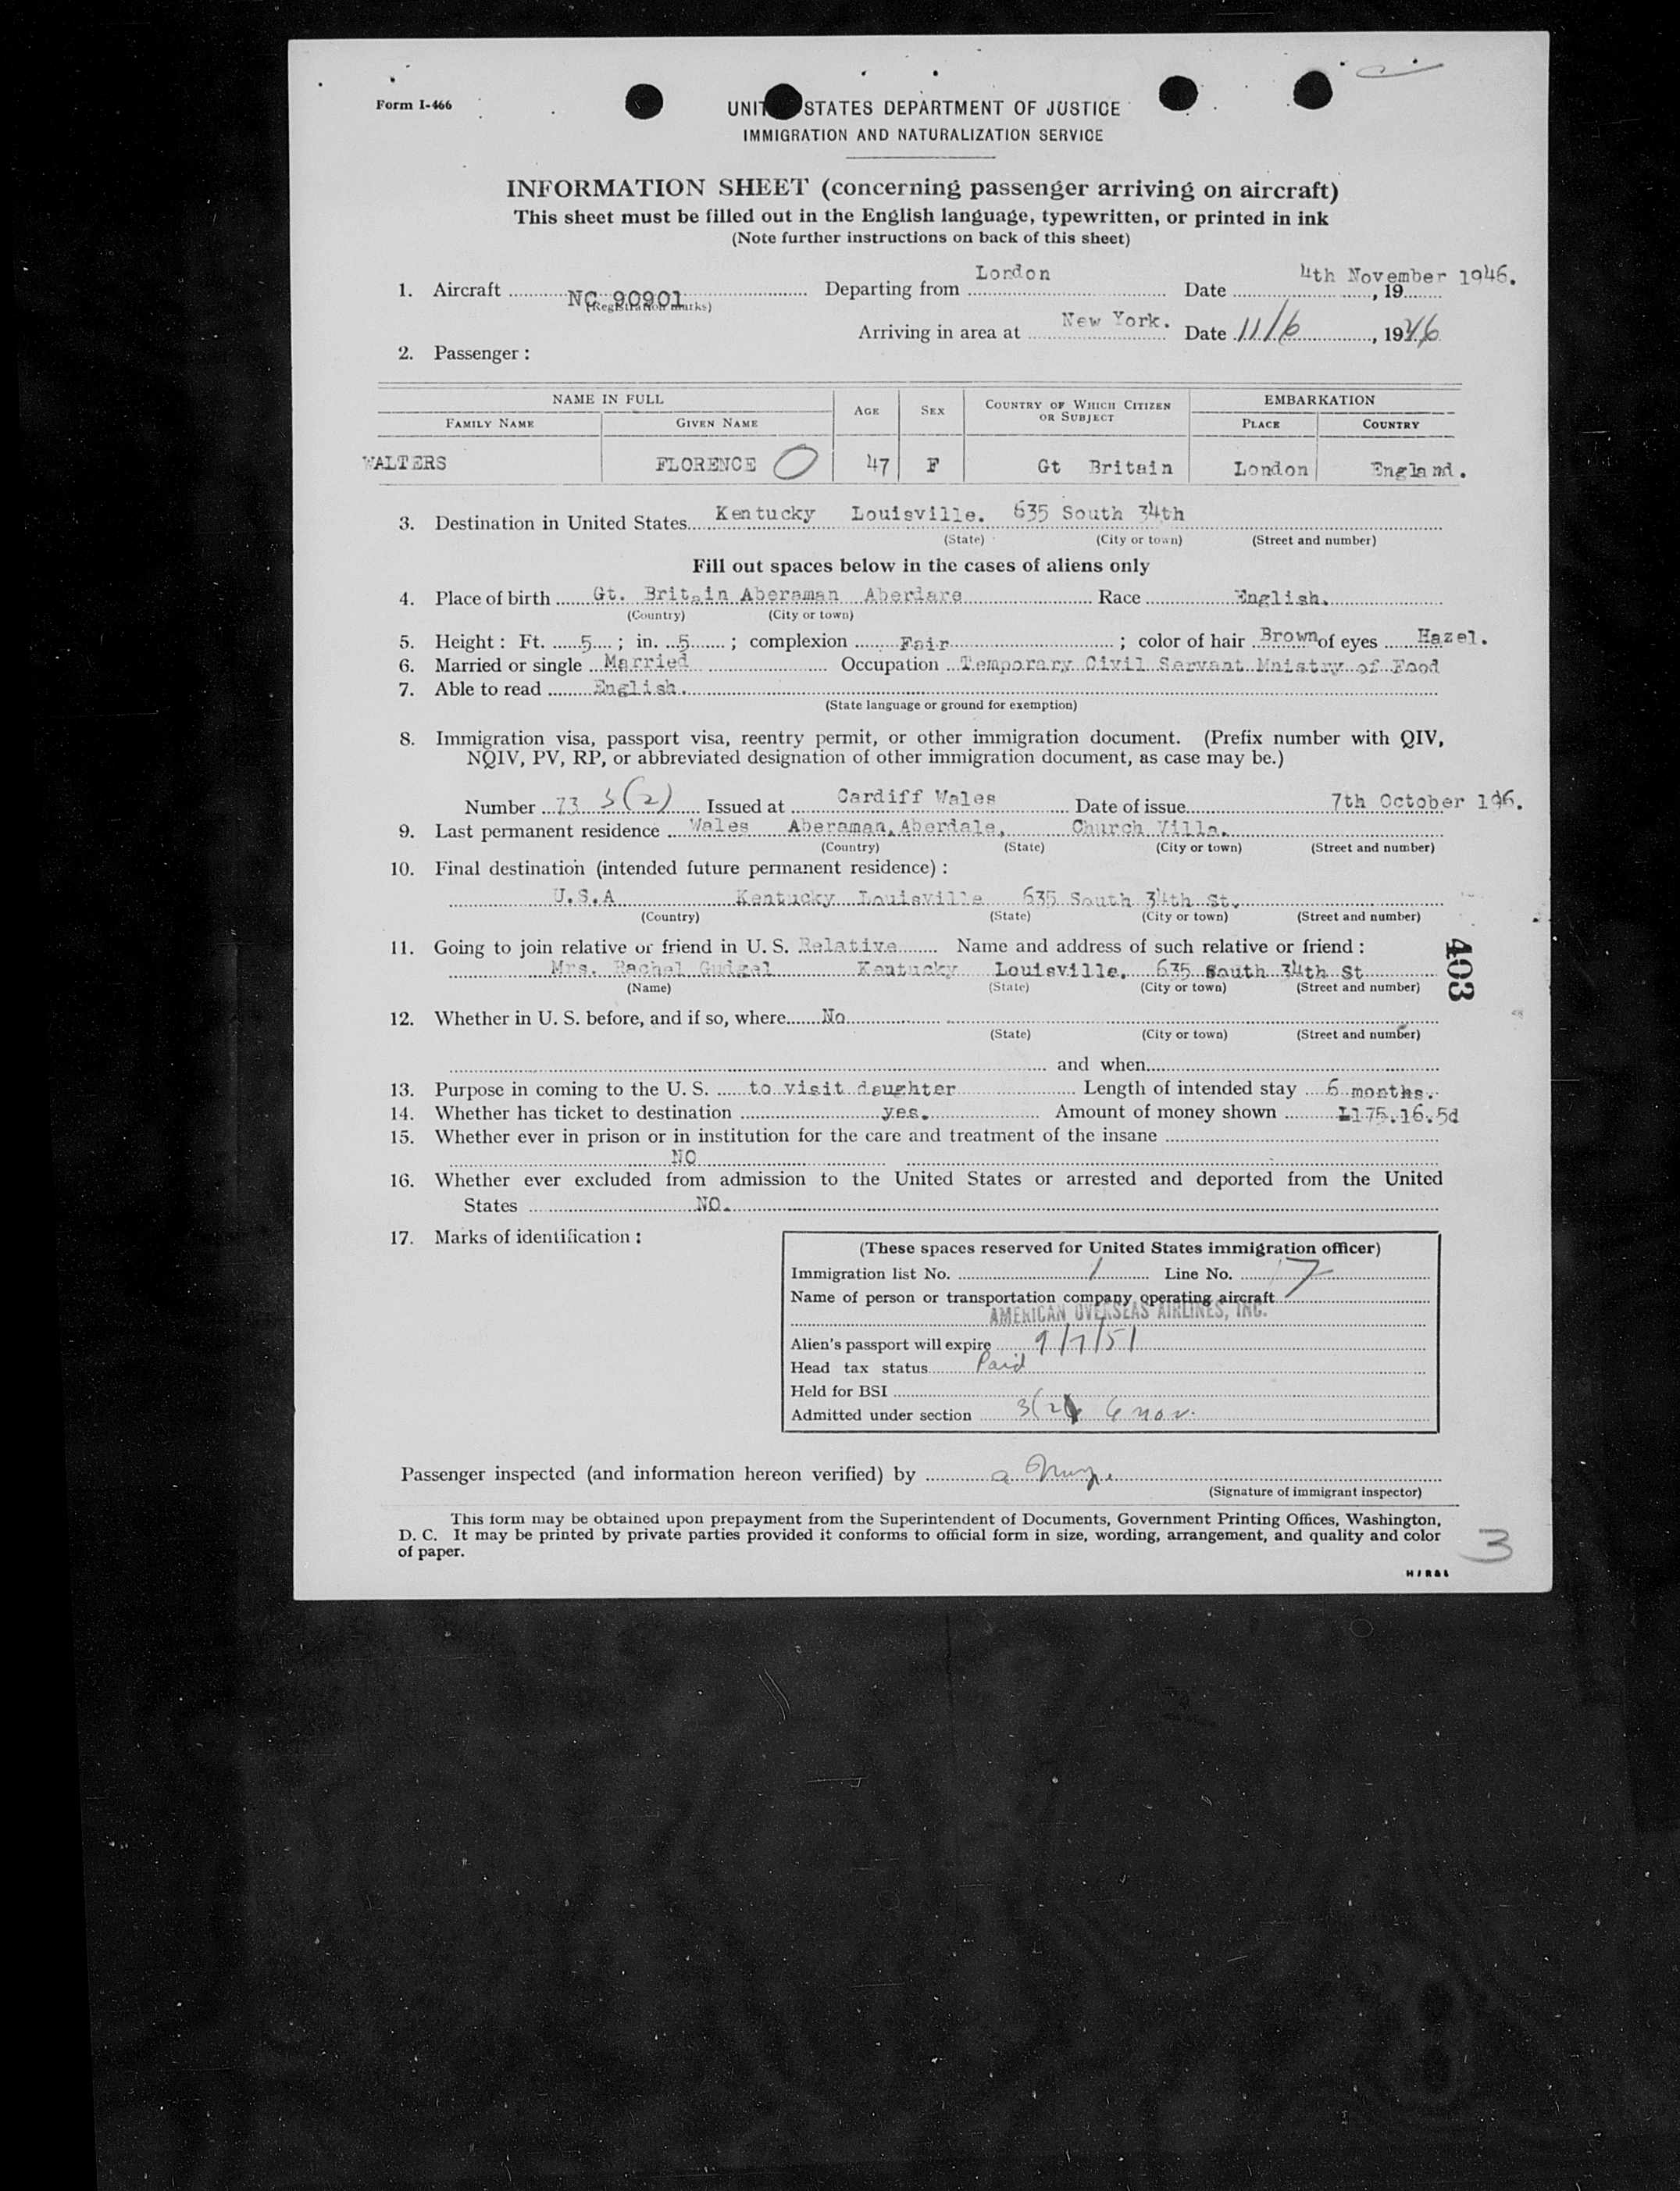 Form I-466
UNITED STATES DEPARTMENT OF JUSTICE
IMMIGRATION AND NATURALIZATION SERVICE
INFORMATION SHEET (concerning passenger arriving on aircraft)
This sheet must be filled out in the English language, typewritten, or printed in ink
(Note further instructions on back of this sheet)
1. Aircraft NC 90901 Departing from London Date 4th November 1946. , 19
(Registration marks)
Arriving in area at New York. Date 11/6, 1946
2. Passenger :
NAME IN FULL AGE SEX COUNTRY OF WHICH CITIZEN OR SUBJECT EMBARKATION
FAMILY NAME GIVEN NAME PLACE COUNTRY
WALTERS FLORENCE O 47 F Gt Britain London England.
3. Destination in United States Kentucky Louisville. 635 South 34th
(State) (City or town) (Street and number)
Fill out spaces below in the cases of aliens only
4. Place of birth Gt. Britain Aberaman Aberdare Race English.
(Country) (City or town)
5. Height : Ft. 5 ; in. 5 ; complexion Fair ; color of hair Brown of eyes Hazel.
6. Married or single Married Occupation Temporary Civil Servant Mnistry of Food
7. Able to read English.
(State language or ground for exemption)
8. Immigration visa, passport visa, reentry permit, or other immigration document. (Prefix number with QIV,
NQIV, PV, RP, or abbreviated designation of other immigration document, as case may be.)
Number 73 3(2) Issued at Cardiff Wales Date of issue 7th October 196.
9. Last permanent residence Wales Aberaman, Aberdale, Church Villa.
(Country) (State) (City or town) (Street and number)
10. Final destination (intended future permanent residence) :
U.S.A Kentucky Louisville 635 South 34th St.
(Country) (State) (City or town) (Street and number)
11. Going to join relative or friend in U. S. Relative Name and address of such relative or friend :
Mrs. Rachel Gudgel Kentucky Louisville. 635 South 34th St
(Name) (State) (City or town) (Street and number)
403
12. Whether in U. S. before, and if so, where No
(State) (City or town) (Street and number)
and when
13. Purpose in coming to the U. S. to visit daughter Length of intended stay 6 months.
14. Whether has ticket to destination yes. Amount of money shown £175.16.5d
15. Whether ever in prison or in institution for the care and treatment of the insane
NO
16. Whether ever excluded from admission to the United States or arrested and deported from the United
States NO.
17. Marks of identification :
(These spaces reserved for United States immigration officer)
Immigration list No. 1 Line No. 7
Name of person or transportation company operating aircraft
AMERICAN OVERSEAS AIRLINES, INC.
Alien's passport will expire 9/7/51
Head tax status Paid
Held for BSI
Admitted under section 3(2) 6 nov.
Passenger inspected (and information hereon verified) by
(Signature of immigrant inspector)
This form may be obtained upon prepayment from the Superintendent of Documents, Government Printing Offices, Washington,
D. C. It may be printed by private parties provided it conforms to official form in size, wording, arrangement, and quality and color
of paper.
3